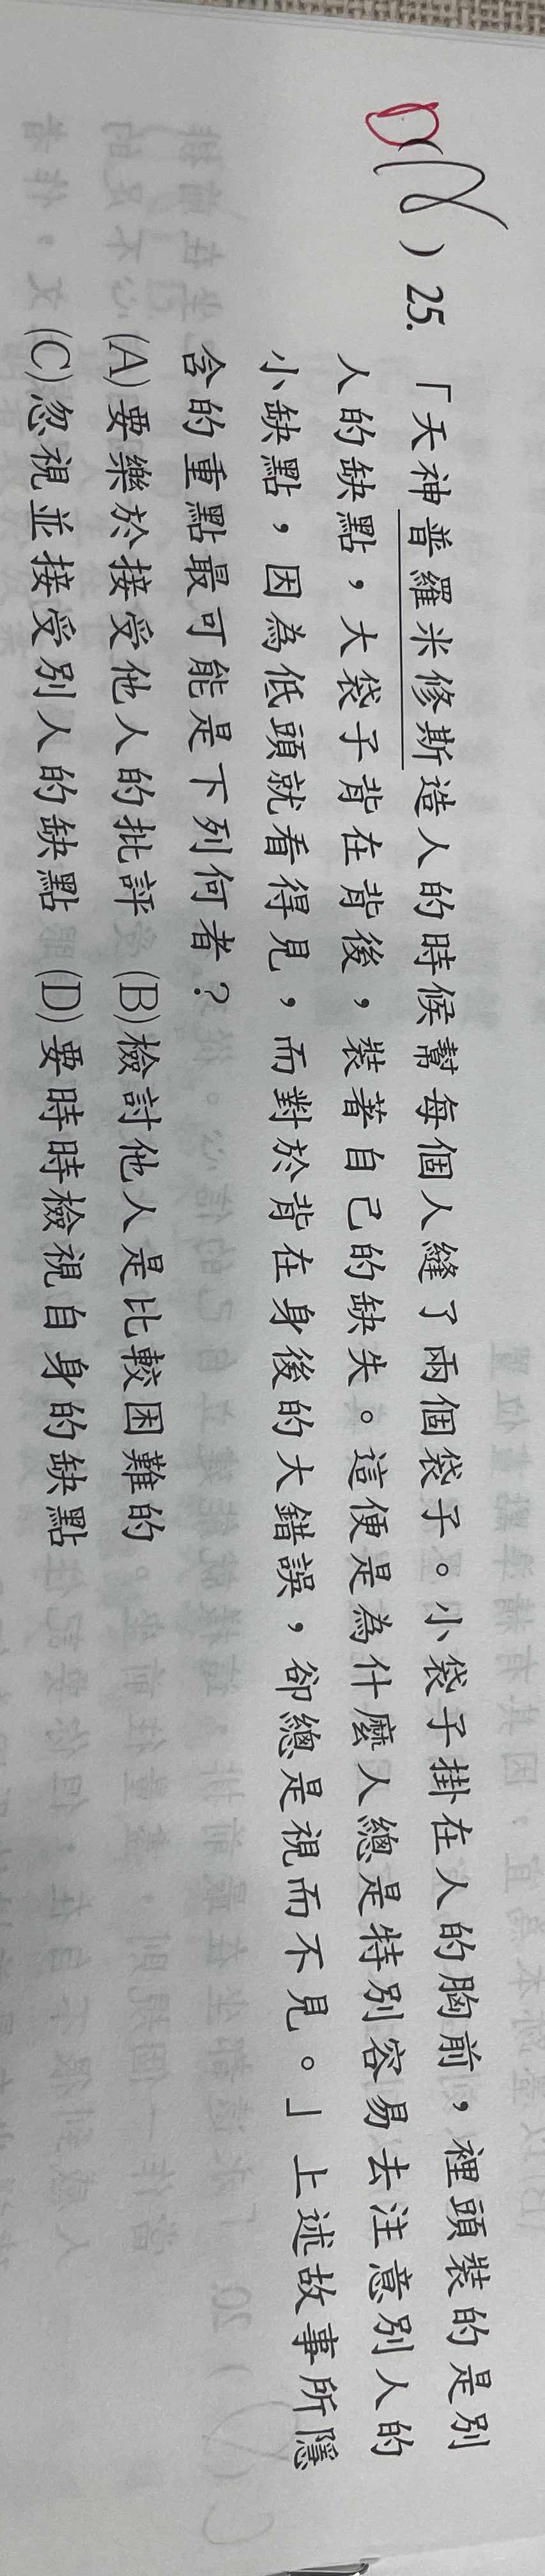 D ( ) 25. 「天神普羅米修斯造人的時候幫每個人縫了兩個袋子。小袋子掛在人的胸前，裡頭裝的是別
人的缺點，大袋子背在背後，裝著自己的缺失。這便是為什麼人總是特別容易去注意別人的
小缺點，因為低頭就看得見，而對於背在身後的大錯誤，卻總是視而不見。」上述故事所隱
含的重點最可能是下列何者？
(A)要樂於接受他人的批評 (B)檢討他人是比較困難的
(C)忽視並接受別人的缺點 (D)要時時檢視自身的缺點